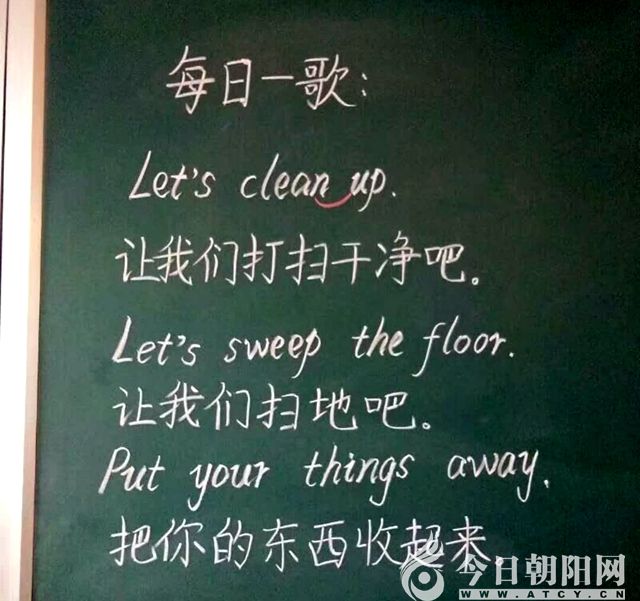 每日一歌:
Let's clean up.
让我们打扫干净吧。
Let's sweep the floor.
让我们扫地吧。
Put your things away.
把你的东西收起来。
今日朝阳网
WWW.ATCY.CN